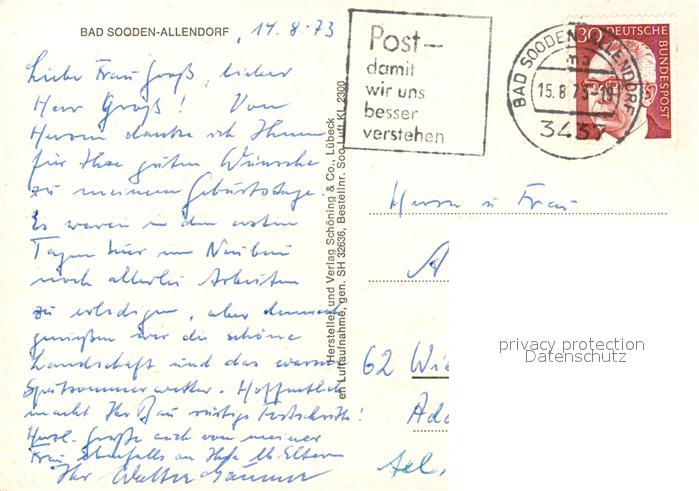 BAD SOODEN-ALLENDORF
14.8.73
Liebe Frau Groß, lieber
Herr Groß! Von
Herzen danke ich Ihnen
für Ihre guten Wünsche
zu meinem Geburtstage.
Es waren in den ersten
Tagen hier im Neubau
noch allerlei Arbeiten
zu erledigen, aber dennoch
genießen wir die schöne
Landschaft und das warme
Spätsommerwetter. Hoffentlich
macht Ihr Bau rüstige Fortschritte!
Herzl. Grüße auch von meiner
Frau ebenfalls an Ihre lb. Eltern
Ihr Walter
Hersteller und Verlag Schöning & Co., Lübeck
en Luftaufnahme, gen. SH 32636, Bestellnr. Soo Luft KL 2300
Post—
damit
wir uns
besser
verstehen
BAD SOODEN-ALLENDORF
15.8.73-19
3437
30 DEUTSCHE
BUNDESPOST
Herrn u Frau
A
62 Wie
Ado
Tel.
privacy protection
Datenschutz